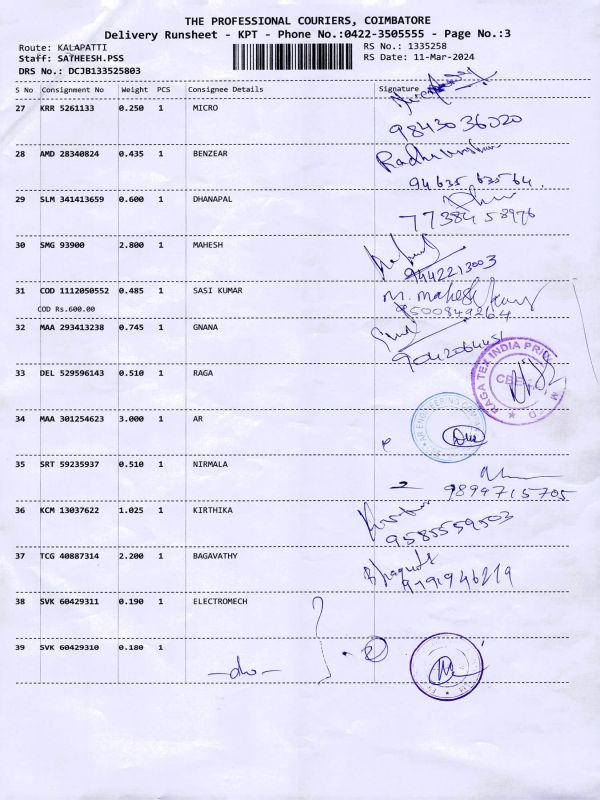 THE PROFESSIONAL COURIERS, COIMBATORE
Delivery Runsheet - KPT - Phone No.:0422-3505555 - Page No.:3
Route: KALAPATTI
RS No.: 1335258
Staff: SATHEESH.PSS
RS Date: 11-Mar-2024
DRS No.: DCJB133525803
S No Consignment No Weight PCS Consignee Details Signature
27 KRR 5261133 0.250 1 MICRO
9843036020
28 AMD 28340824 0.435 1 BENZEAR
94635 63564.
29 SLM 341413659 0.600 1 DHANAPAL
77384 58976
30 SMG 93900 2.800 1 MAHESH
9442213003
31 COD 1112050552 0.485 1 SASI KUMAR
M. Mahesh Kumar
COD Rs.600.00
9500849264
32 MAA 293413238 0.745 1 GNANA
33 DEL 529596143 0.510 1 RAGA
RAGA TEX INDIA PRIV
34 MAA 301254623 3.000 1 AR
AR ENGINEERING
35 SRT 59235937 0.510 1 NIRMALA
9894715705
36 KCM 13037622 1.025 1 KIRTHIKA
9585559503
37 TCG 40887314 2.200 1 BAGAVATHY
38 SVK 60429311 0.190 1 ELECTROMECH
39 SVK 60429310 0.180 1
-do-